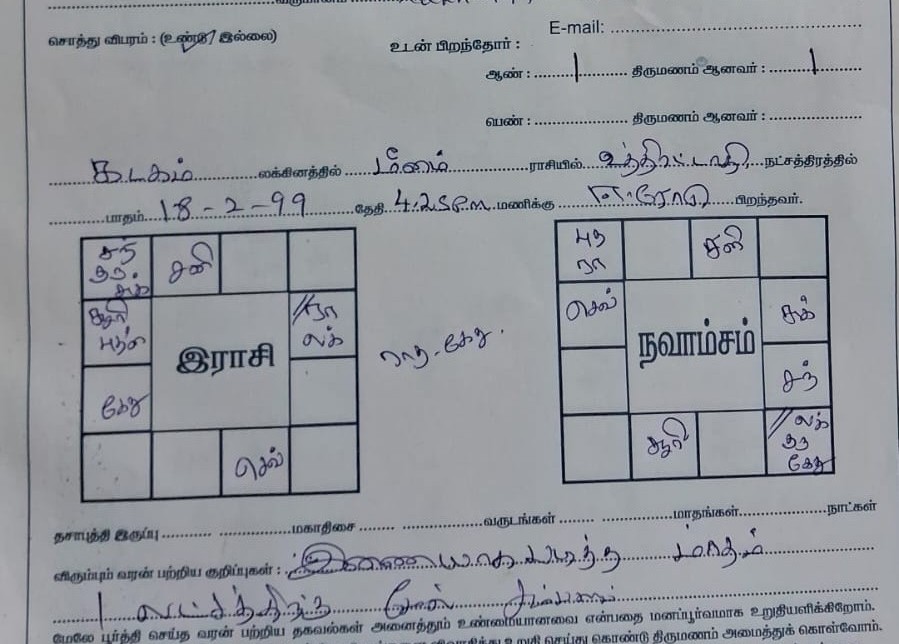 சொத்து விபரம் : (உண்டு / இல்லை)
E-mail:
உடன் பிறந்தோர் :
ஆண் : 1 திருமணம் ஆனவர் : 1
பெண் : திருமணம் ஆனவர் :
கடகம் லக்கினத்தில் மீனம் ராசியில் உத்திரட்டாதி நட்சத்திரத்தில்
பாதம் 18-2-99 தேதி 4.25 P.m மணிக்கு ஈரோடு பிறந்தவர்.
சந் குரு சுக் சனி
சூரி புதன் ரா லக்
இராசி
கேது
செவ்
ராகு-கேது.
புத ரா சனி
செவ் சுக்
நவாம்சம்
சந்
சூரி லக் குரு கேது
தசாபுத்தி இருப்பு மகாதிசை வருடங்கள் மாதங்கள் நாட்கள்
விரும்பும் வரன் பற்றிய குறிப்புகள் : இணையாக படித்த மாதம்
1 லட்சத்திற்கு மேல் சம்பளம்
மேலே பூர்த்தி செய்த வரன் பற்றிய தகவல்கள் அனைத்தும் உண்மையானவை என்பதை மனப்பூர்வமாக உறுதியளிக்கிறோம்.
உறுதி செய்து கொண்டு திருமணம் அமைத்துக் கொள்வோம்.